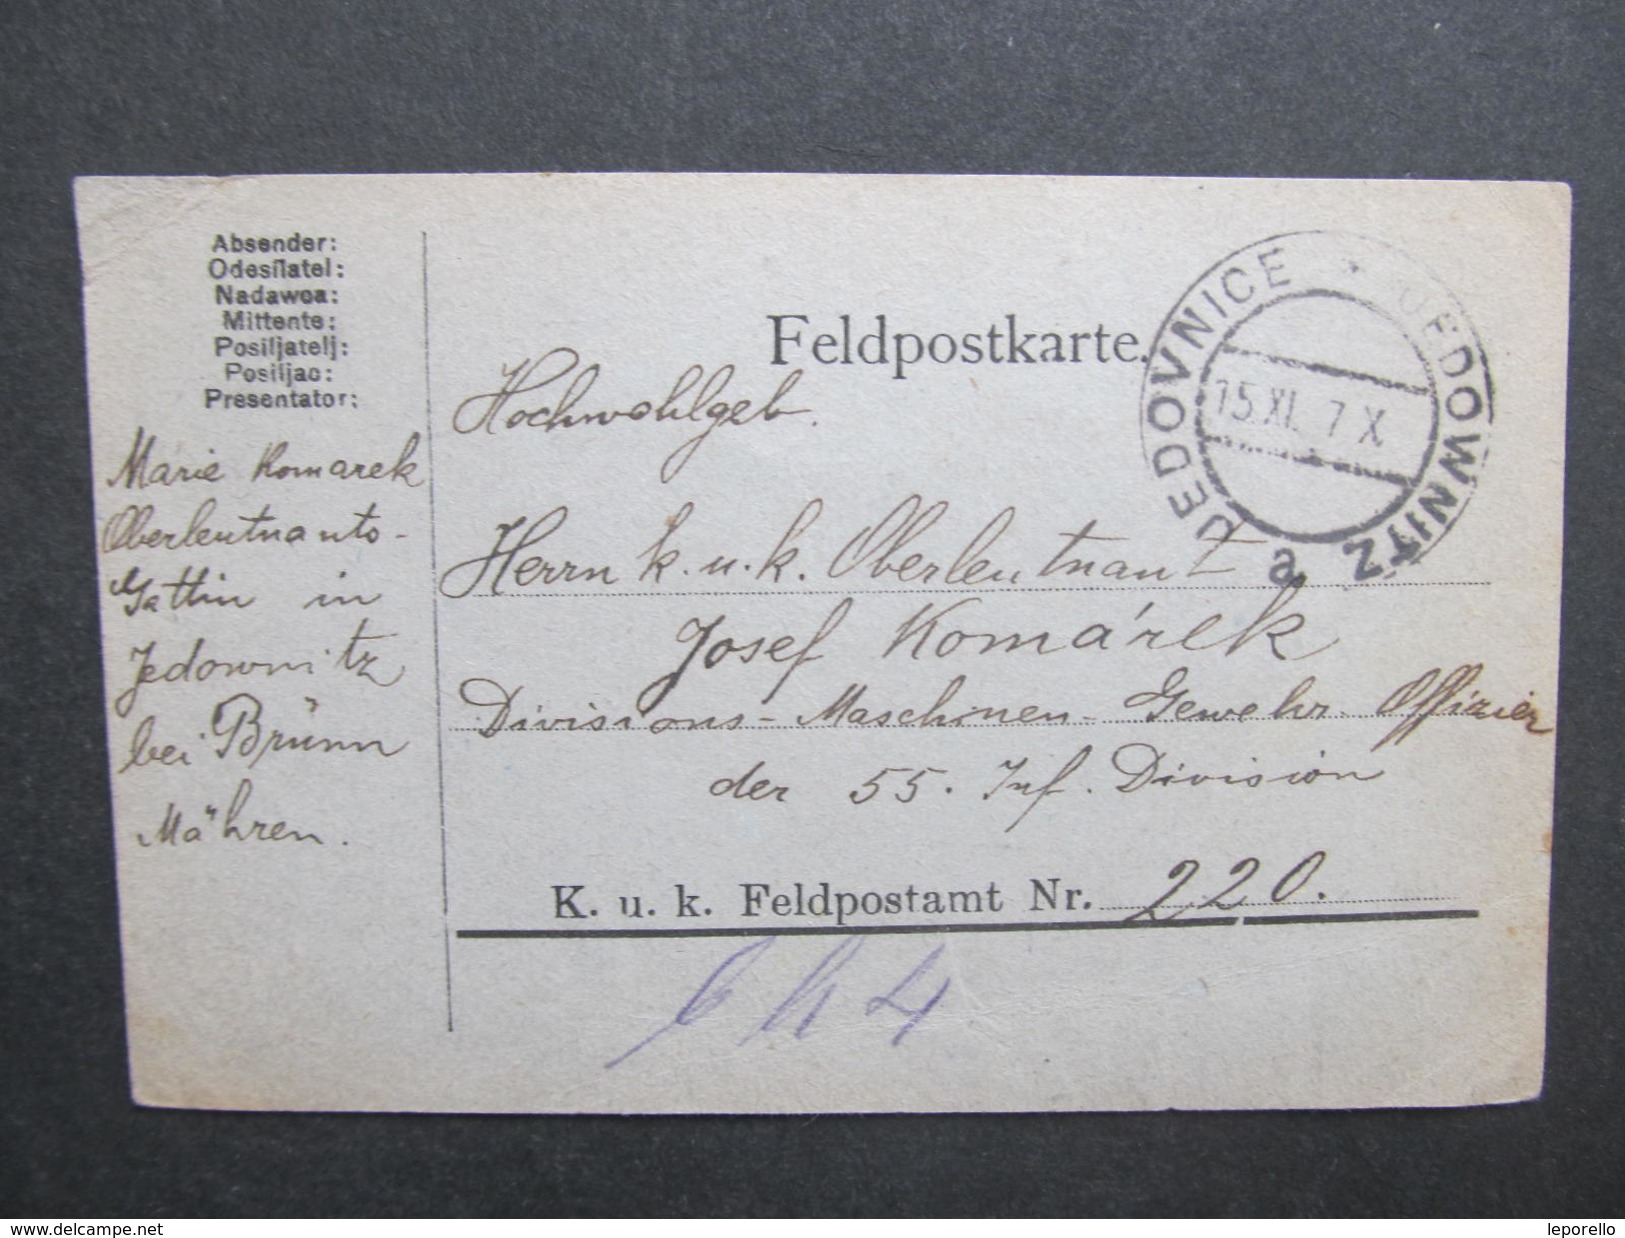 Absender:
Odesílatel:
Nadawca:
Mittente:
Pošiljatelj:
Posiljac:
Presentator:
Marie Komarek
Oberleutnants-
Gattin in
Jedownitz
bei Brünn
Mähren.
Feldpostkarte.
JEDOVNICE * JEDOWNITZ
15.XI. 7 X
a
Hochwohlgeb.
Herrn k. u. k. Oberleutnant
Josef Komárek
Divisions-Maschinen-Gewehr Offizier
der 55. Inf. Division
K. u. k. Feldpostamt Nr. 220.
www.delcampe.net
leporello